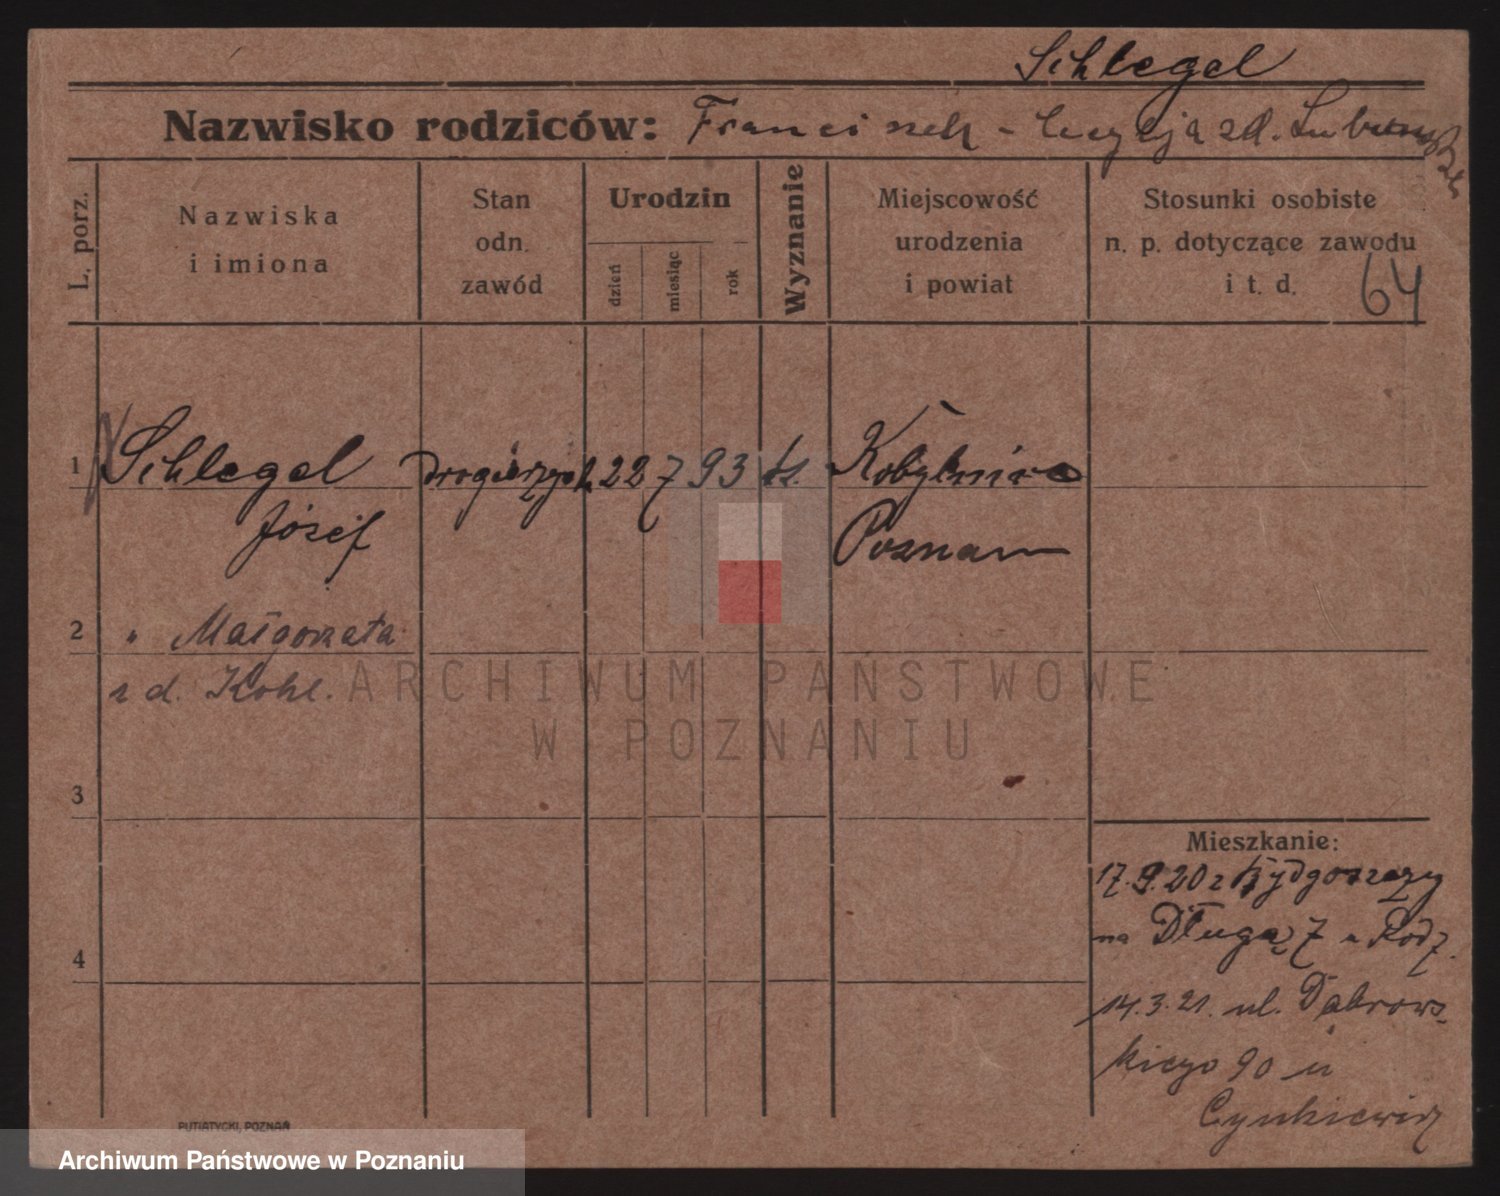 Schlegel
Nazwisko rodziców: Franciszek - Lucyja zd.
L. porz.
Nazwiska
i imiona
Stan
odn.
zawód
Urodzin
dzień
miesiąc
rok
Wyznanie
Miejscowość
urodzenia
i powiat
Stosunki osobiste
n. p. dotyczące zawodu
i t. d.
64
1 Schlegel 22 7 93 kt. Kobylnica
Józef Poznań
2 " Małgorzata
zd. Kohl.
ARCHIWUM PAŃSTWOWE
W POZNANIU
3
4
Mieszkanie:
17.9.20 z Bydgoszczy
na Długą 7 u Rodz.
14.3.21. ul. Dąbrows-
kiego 90 u
PUTIATYCKI, POZNAŃ
Archiwum Państwowe w Poznaniu